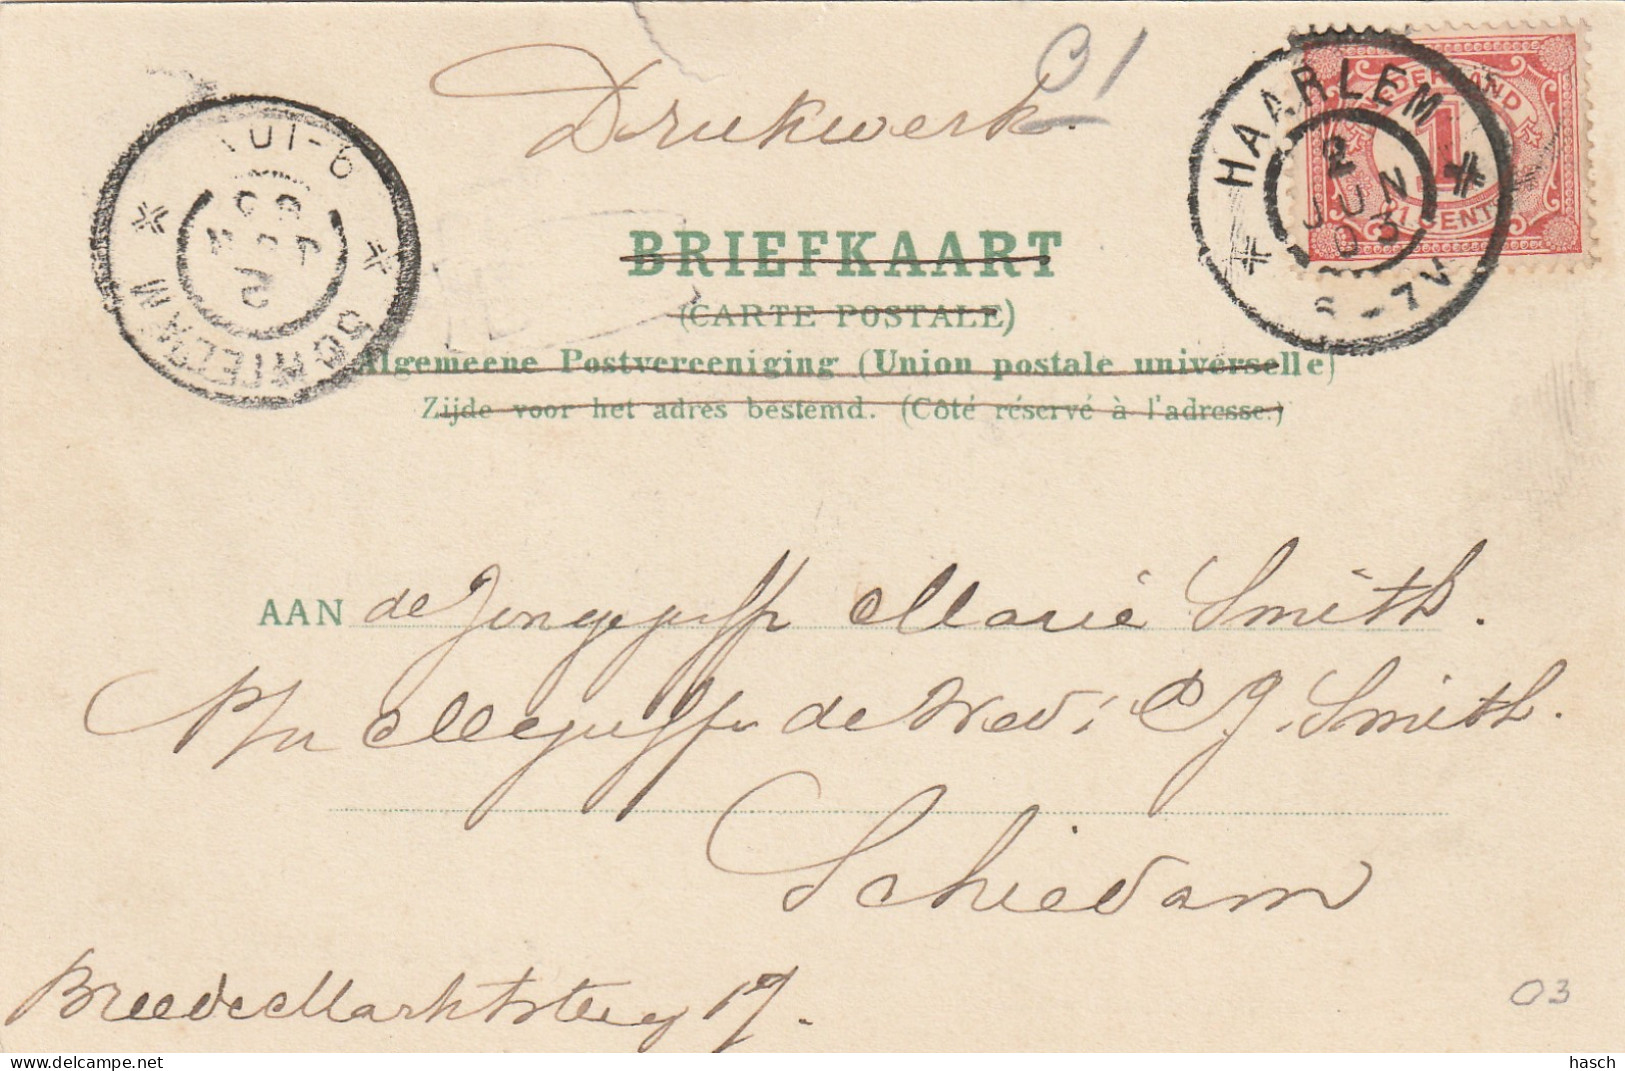 Drukwerk.
01
HAARLEM
2
JUN
03
6 - 7 N
NEDERLAND
1
1 CENT
9-10
2
JUN
03
SCHIEDAM
BRIEFKAART
(CARTE POSTALE)
Algemeene Postvereeniging (Union postale universelle)
Zijde voor het adres bestemd. (Côté réservé à l'adresse.)
AAN de Jongejuffr Marie Smith.
p/a Mejuffr de Wed: C J. Smith.
Schiedam
Breede Marktsteeg 17.
03
hasch